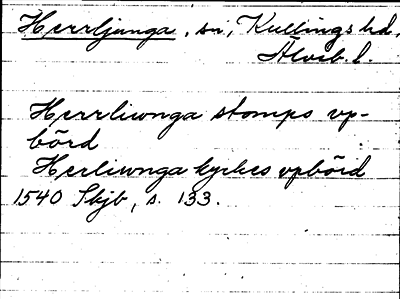 Herrljunga, sn, Kullings hd,
Älvsb. l.
Herrliwnga stomps vp-
börd
Herliwnga kyrkes vpbörd
1540 Skjb, s. 133.